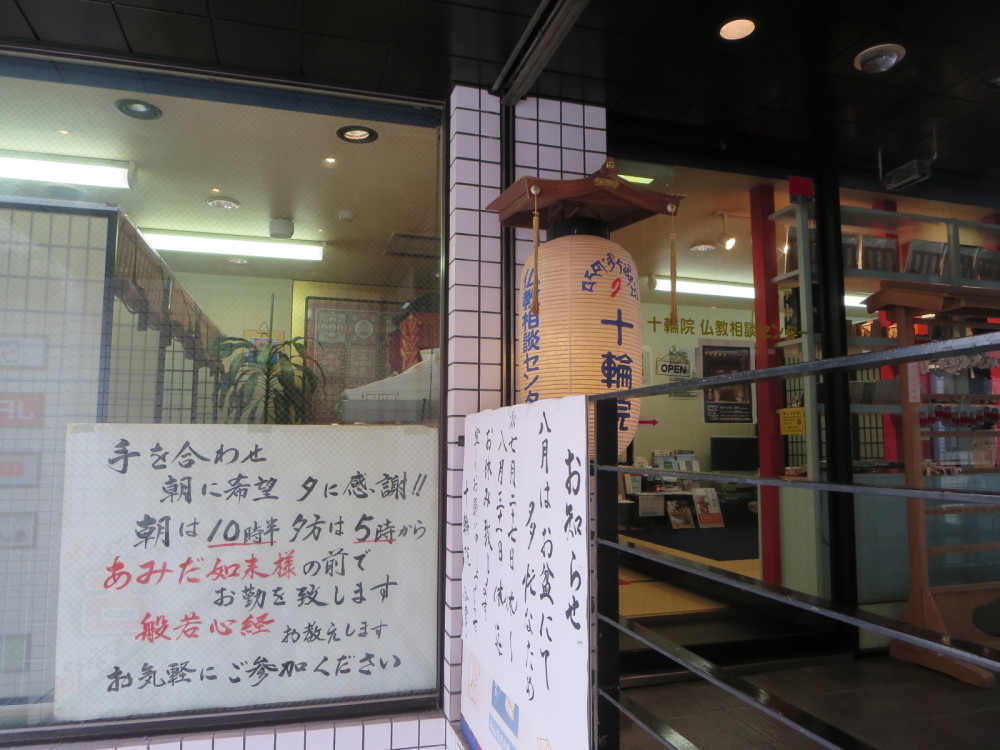 手を合わせ
朝に希望 夕に感謝!!
朝は10時半 夕方は5時から
あみだ如来様の前で
お勤を致します
般若心経 お教えします
お気軽にご参加ください
お知らせ
八月はお盆にて
多忙なため
七月二十七日
八月三十一日
お休み致します
十輪院
仏教相談センタ
十輪院 仏教相談センター
OPEN